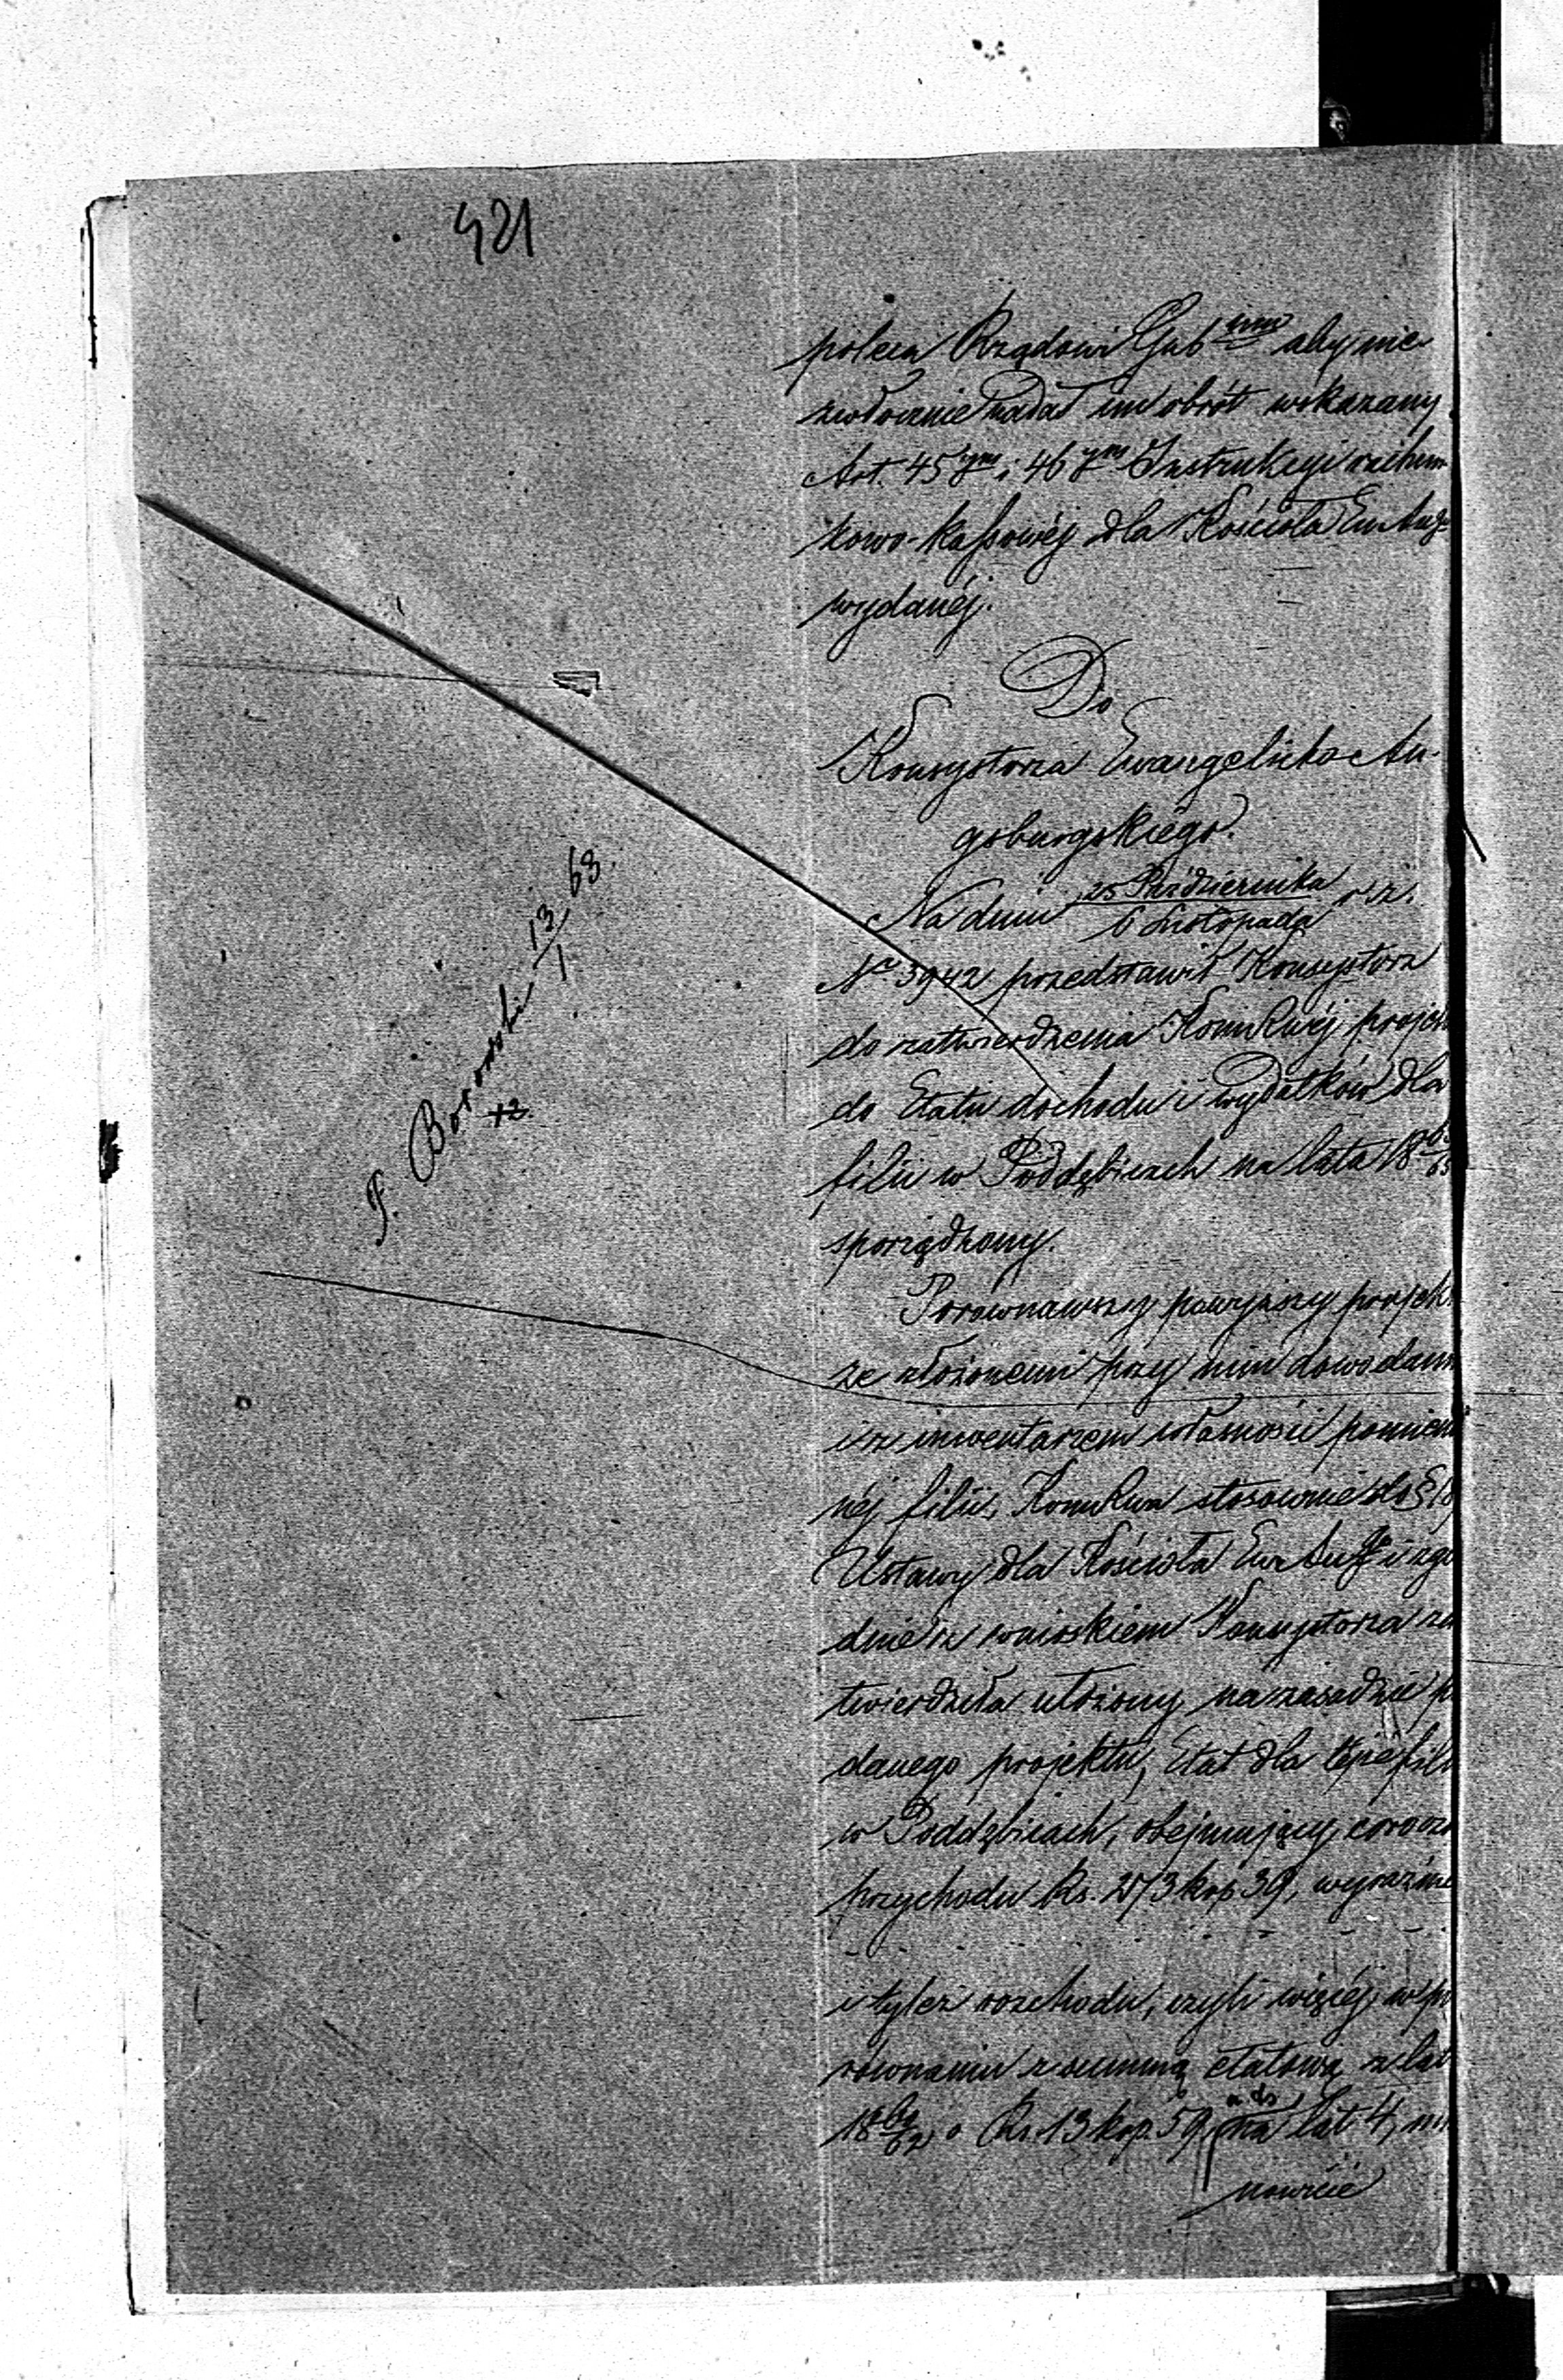 421
poleca Rządowi Gub aby nie
zwłocznie nadał im obrót wskazany
Art. 45ym i 46ym Instrukcyi rachun
kowo-kassowéj dla Kościoła Ew Aug
wydanéj.
Do
Konsystorza Ewangelicko Au-
gsburgskiego.
Na dniu 25 Października / 6 Listopada r. z.
No 3942 przedstawił Konsystorz
do zatwierdzenia projek
do Etatu dochodu i wydatków dla
filii w Poddębicach na lata 18
sporządzony.
Porównawszy powyższy projek
ze złożonemi przy nim dowodami
i z inwentarzem własności pomien
néj filii, stosownie do §
Ustawy dla Kościoła Ew Aug i zgo
dnie z wnioskiem Konsystorza za
twierdziła ułożony na zasadzie po
danego projektu, Etat dla tejże filii
w Poddębicach, obejmujący coroczn
przychodu Rs. 273 kop 39, wyraźnie
i tyleż rozchodu, czyli więcéj w po
równaniu z summą etatową z lat
18 62 o Rs. 13 kop. 59, na lat 4, mia
nowicie
F. Borowski 13/1 63.